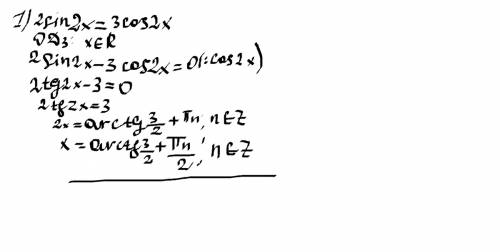 1) 2sin2x = 3cos2x
ОДЗ: x∈R
2sin2x-3cos2x=0(:cos2x)
2tg2x-3=0
2tg2x=3
2x=arctg 3/2 + πn, n∈Z
x = arctg 3/2 + πn/2, n∈Z